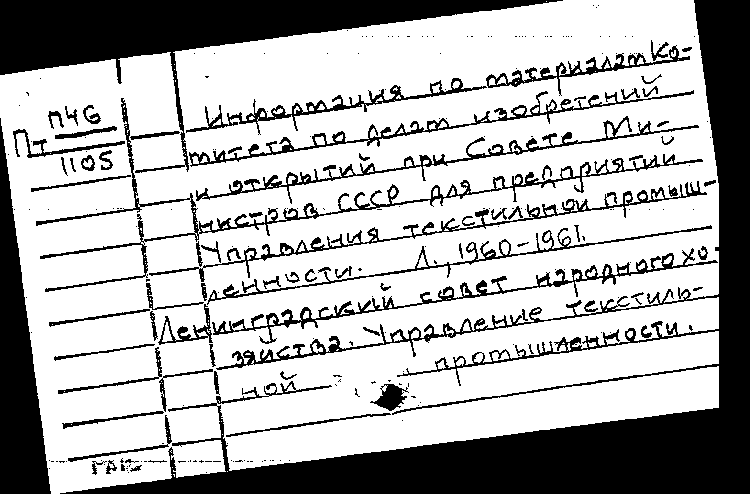 Пт П46
1105
Информация по материалам Ко-
митета по делам изобретений
и открытий при Совете Ми-
нистров СССР для предприятий
Управления текстильной промыш-
ленности. Л., 1960-1961.
Ленинградский совет народного хо-
зяйства. Управление текстиль-
ной промышленности.